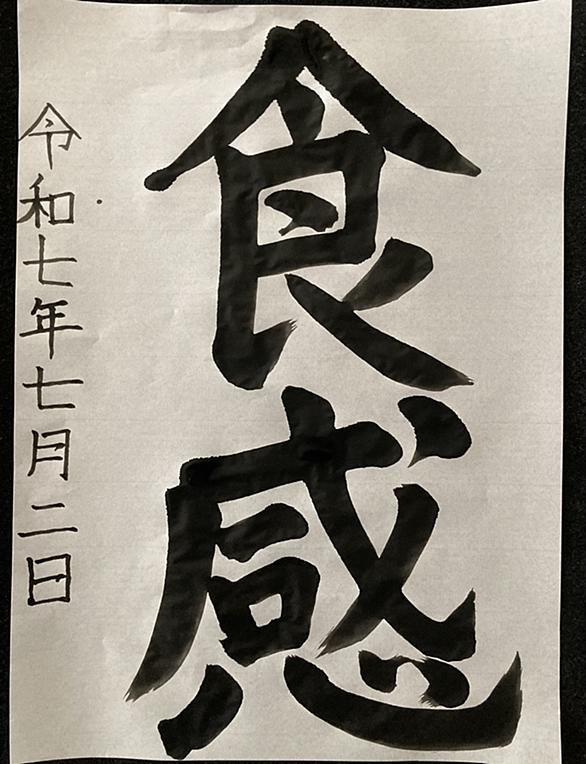 食感
令和七年七月二日